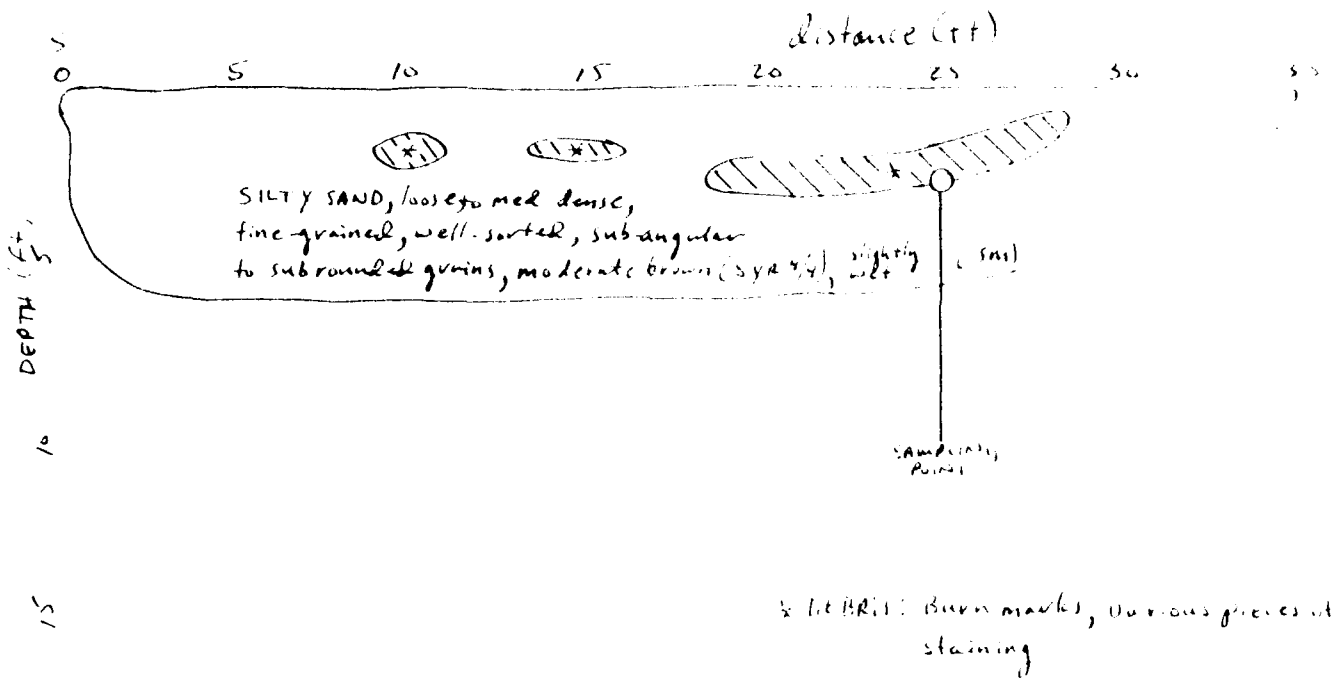 distance (ft)
0 5 10 15 20 25 30
SILTY SAND, loose to med dense,
fine-grained, well-sorted, subangular
to subrounded grains, moderate brown (5YR 4/4), slightly wet (SM)
DEPTH (ft)
5
10
15
SAMPLING
POINT
* DEBRIS: Burn marks, various pieces of
staining